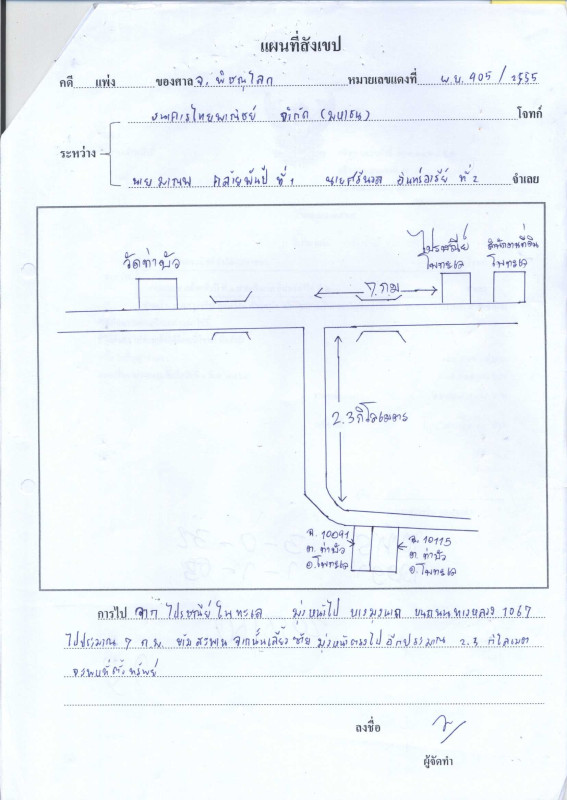 แผนที่สังเขป
คดี แพ่ง ของศาล จ. พิษณุโลก หมายเลขแดงที่ ผ.บ. 905 / 2555
ธนาคารไทยพาณิชย์ จำกัด (มหาชน) โจทก์
ระหว่าง
นาย มานพ คล้ายพันธ์ ที่ 1 นายศรีนวล อินทร์อารีย์ ที่ 2 จำเลย
วัดท่าบัว
ไปรษณีย์ โพทะเล
สำนักงานที่ดิน โพทะเล
7 กม
2.3 กิโลเมตร
ฉ. 10091
ต. ท่าบัว
อ. โพทะเล
ฉ. 10115
ต. ท่าบัว
อ. โพทะเล
การไป จาก ไปรษณีย์ โพทะเล มุ่งหน้าไป บนถนนทางหลวง 1067
ไปประมาณ 7 ก.ม. ข้ามสะพาน จากนั้นเลี้ยวซ้าย มุ่งหน้าตรงไป อีกประมาณ 2.3 กิโลเมตร
จะพบที่ตั้งทรัพย์
ลงชื่อ
ผู้จัดทำ